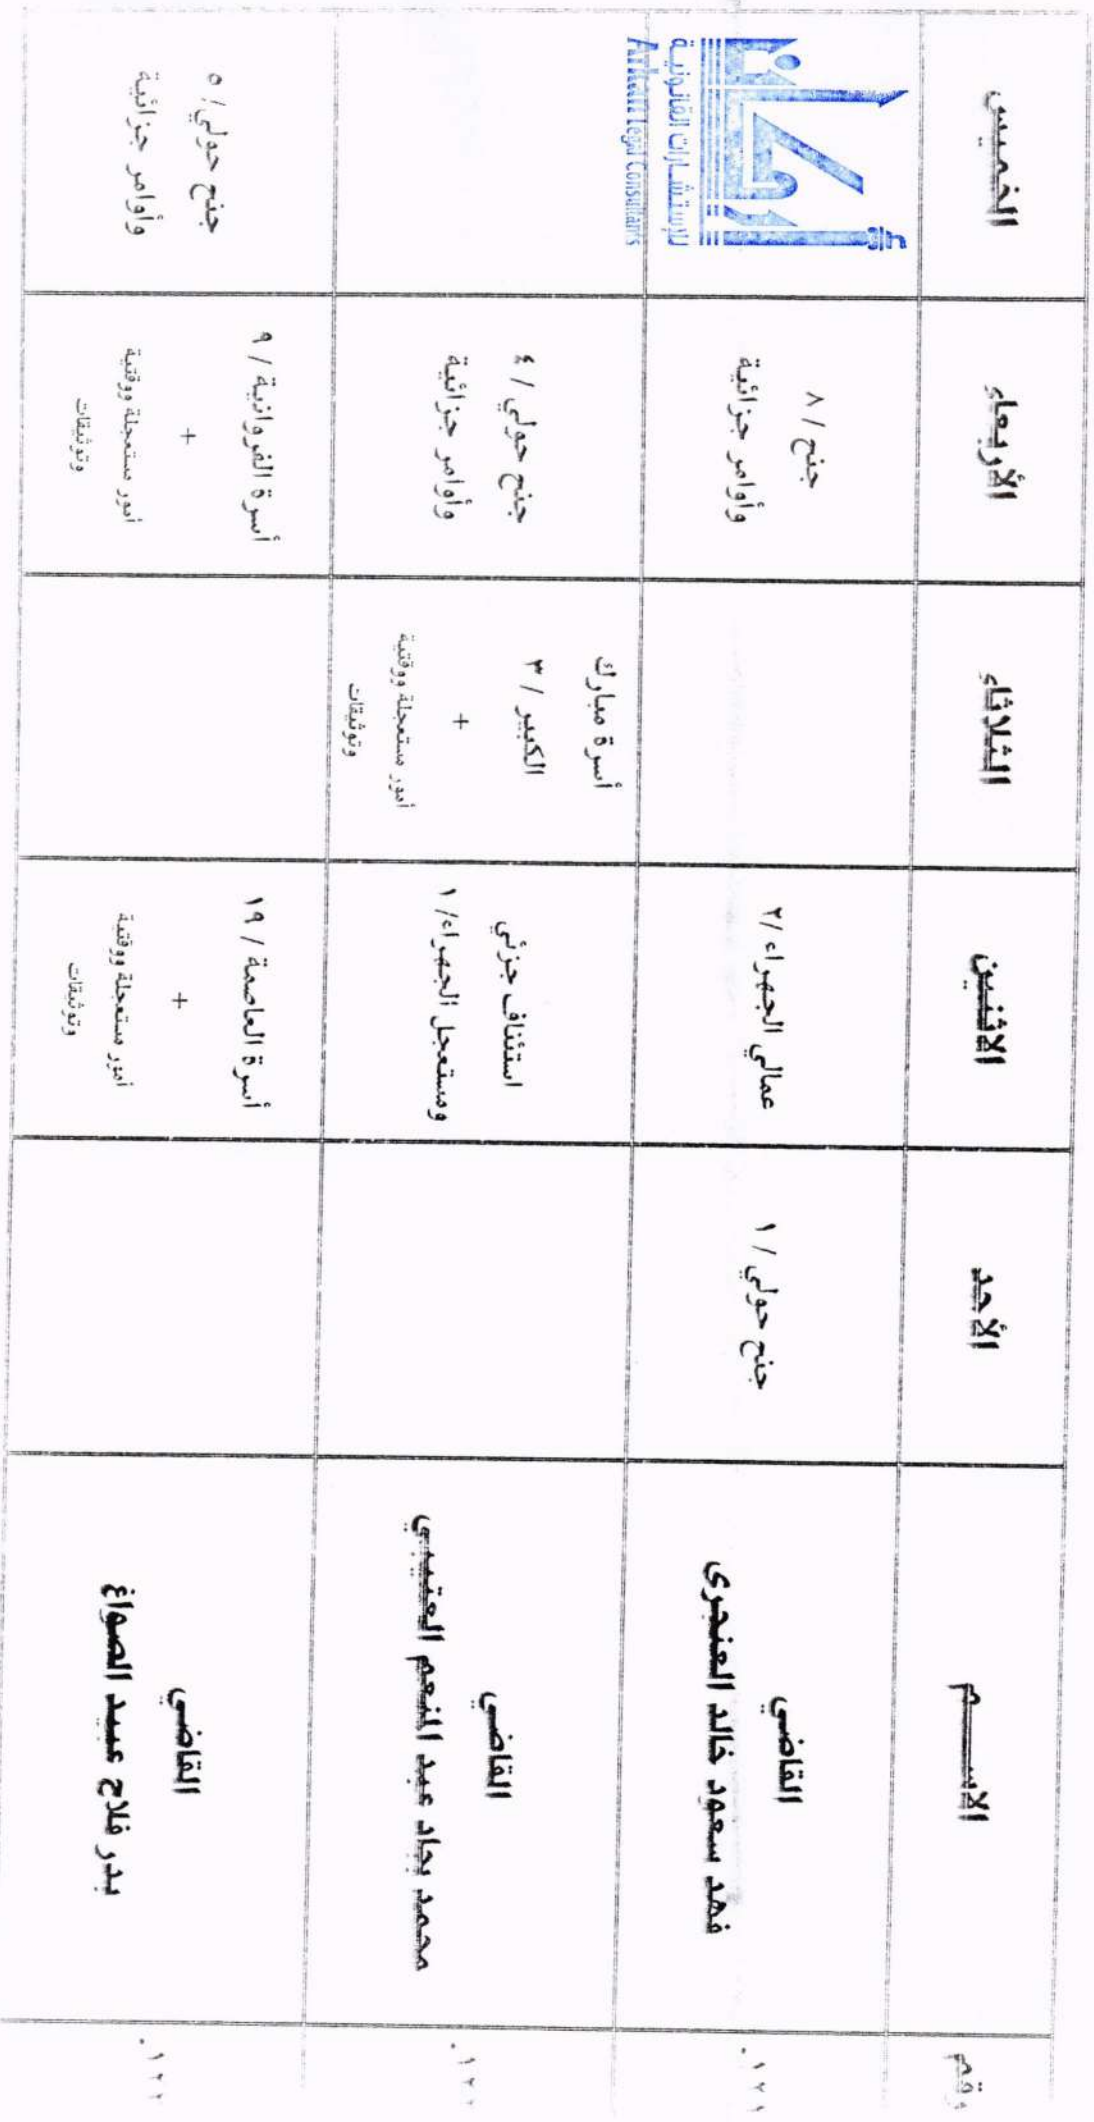 رقم
الاســـم
الأحد
الاثنين
الثلاثاء
الأربعاء
الخميس
١٢١.
القاضي
فهد سعود خالد العنجرى
جنح حولي / ١
عمالي الجهراء /٢
جنح / ٨
وأوامر جزائية
أركان
للإستشارات القانونية
Arkan Legal Consultants
القاضي
محمد بجاد عبد المنعم العتيبي
استئناف جزئي
ومستعجل الجهراء/ ١
أسرة مبارك
الكبير / ٣
+
أمور مستعجلة ووقتية
وتوثيقات
جنح حولي / ٤
وأوامر جزائية
القاضي
بدر فلاح عبيد الصواغ
أسرة العاصمة / ١٩
+
أمور مستعجلة ووقتية
وتوثيقات
أسرة الفروانية / ٩
+
أمور مستعجلة ووقتية
وتوثيقات
جنح حولي/ ٥
وأوامر جزائية